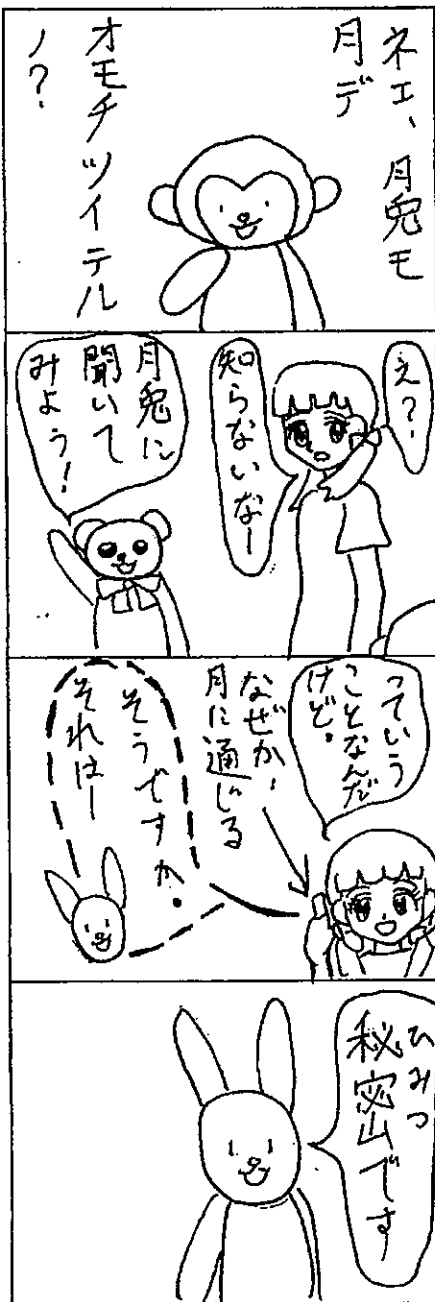 ネエ、月兎モ
月デ
オモチツイテル
ノ?
え?
知らないなー
月兎に
聞いて
みよう!
っていう
ことなんだ
けど。
なぜか、
月に通じる
そうですか。
それはー
ひみつ
秘密山です